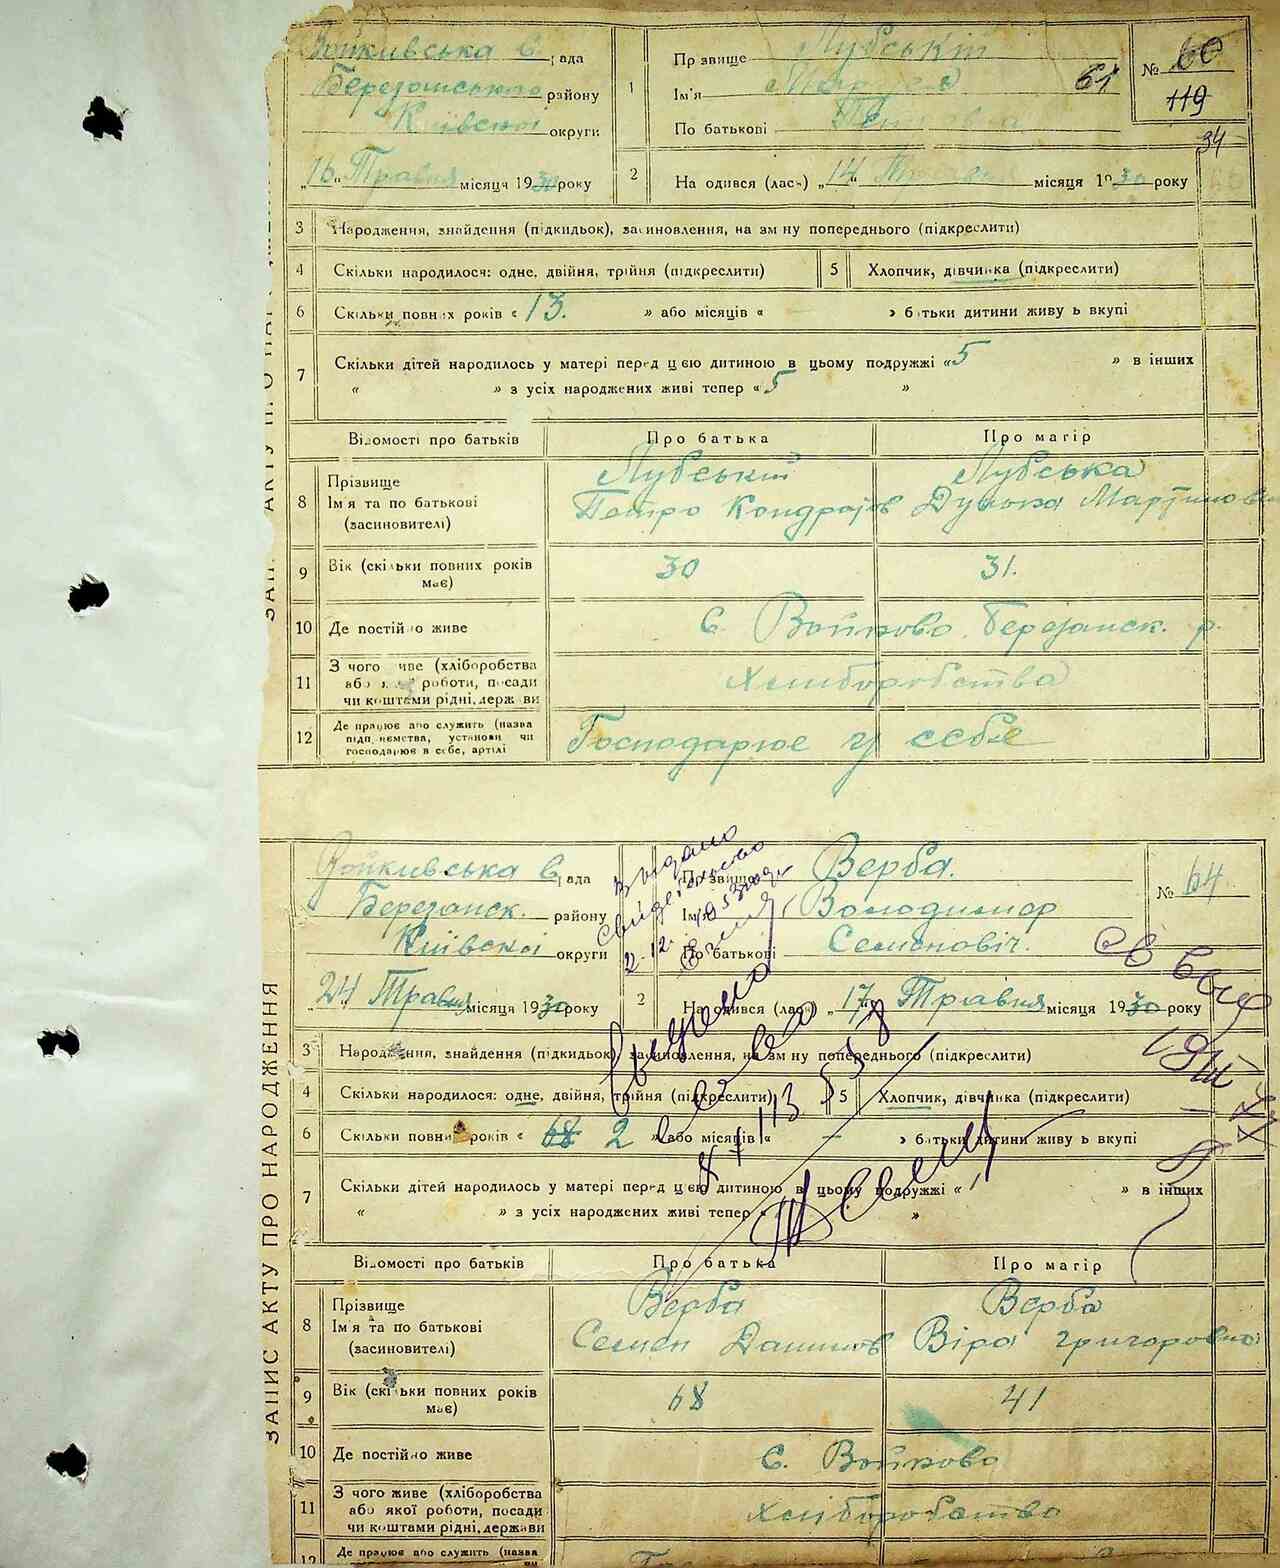 Войкивська с. рада
Березанського району
Київскої округи
„16“ Травня місяця 1930 року
1
Прізвище Лубській
Ім'я 61
По батькові Петровна
№ 60
119
34
2
На одився (лась) „14“ місяця 1930 року
3 Народження, знайдення (підкидьок), засиновлення, на зм ну попереднього (підкреслити)
4 Скільки народилося: одне, двійня, трійня (підкреслити) 5 Хлопчик, дівчинка (підкреслити)
6 Скільки повних років « 13. » або місяців « » батьки дитини живу ь вкупі
7 Скільки дітей народилось у матері перед цією дитиною в цьому подружжі «5 » в інших
« » з усіх народжених живі тепер «5 »
Відомості про батьків Про батька Про матір
8 Прізвище Лубській Лубська
Ім'я та по батькові Петро Кондратов Мартинов
(засиновителі)
9 Вік (скільки повних років має) 30 31.
10 Де постійно живе с. Войково Березанск. р.
11 З чого живе (хліборобства
або роботи, посади Хлиборобства
чи коштами рідні, держ ви
12 Де працює або служить (назва
підп иємства, установи чи Господарює у себе
господарює в себе, артілі
ЗАПИС АКТУ ПРО НАРОДЖЕННЯ
Войкивська с. рада
Березанск. району
Київскої округи
„24 Травня місяця 1930 року
Прізвище Верба.
Ім'я Володимер
По батькові Семенович.
№ 64
Видано
2
Народився (лась) „17“ Травня місяця 1930 року
3 Народження, знайдення (підкидьок), засиновлення, на зм ну попереднього (підкреслити)
4 Скільки народилося: одне, двійня, трійня (підкреслити) 5 Хлопчик, дівчинка (підкреслити)
6 Скільки повних років « 68 2 » або місяців « — » батьки дитини живу ь вкупі
7 Скільки дітей народилось у матері перед цією дитиною в цьому подружжі « » в інших
« » з усіх народжених живі тепер « »
Відомості про батьків Про батька Про матір
8 Прізвище Верба Верба
Ім'я та по батькові Семен Данилов Віра Григоровна
(засиновителі)
9 Вік (скільки повних років має) 68 41
10 Де постійно живе с. Войково
11 З чого живе (хліборобства
або якої роботи, посади хліборобство
чи коштами рідні, держави
12 Де працює або служить (назва